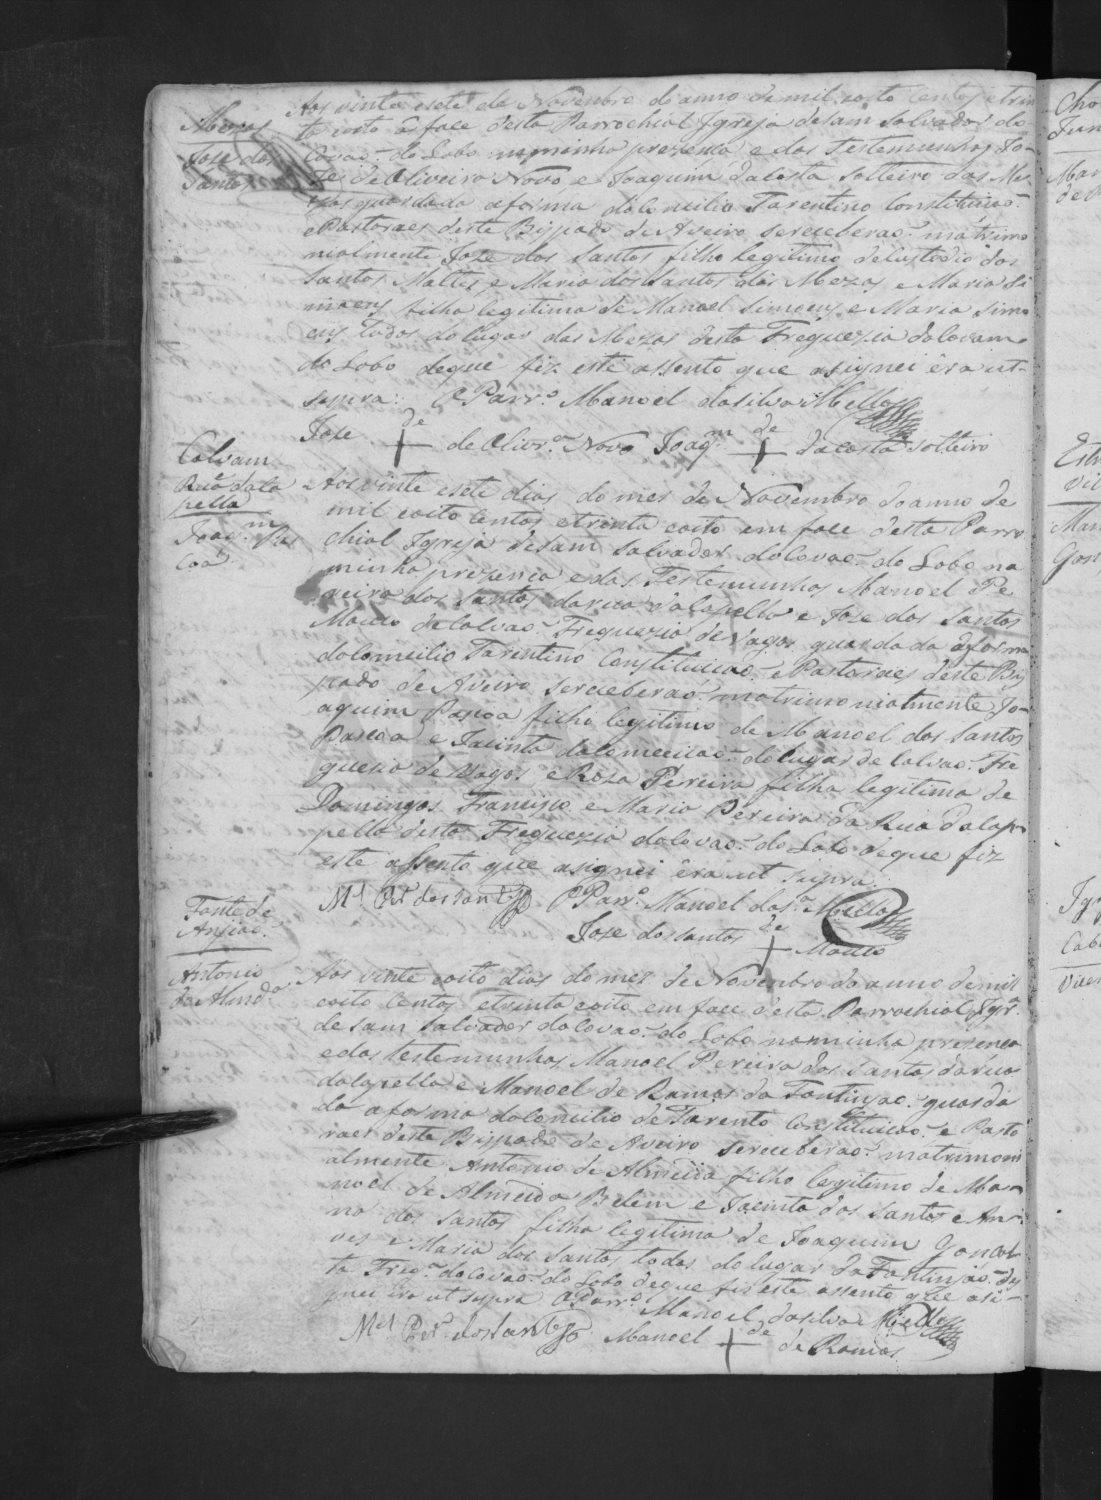 Mezas
Joze dos
Santos
Aos vinte esete de Novembro do anno de mil eoito centos etrin
ta eoito ê face desta Parrochial Igreja desam Salvador do
Covaõ do Lobo naminha prezensa e das Testemunhas Jo-
ze de Oliveira Novo e Joaquim dacosta solteiro das Me-
zas guardada aforma doConcilio Tarentino Constituicaõ
ePastoraes deste Bispado de Aveiro sereceberaõ matrimo
nialmente Joze dos Santos filho legitimo deCustodio dos
Santos Mattes, e Maria dos Santos das Mezas, e Maria Si
moens filha legitima de Manoel Simoens, e Maria Simo
ens todos dolugar das Mezas desta Freguezia doCovam
do Lobo deque fiz este assento que asignei êra ut-
supra. O Parr.º Manoel dasilva Mello
Joze de + de Olivr.ª Novo Joaq.m de + dacosta solteiro
Calvam
Rua daCa
pella
Joaq.m Pas
coa
Aos vinte esete dias do mes de Novembro doanno de
mil eoito Centos etrinta eoito em face desta Parro
chial Igreja desam Salvador doCovaõ do Lobo na
minha prezenca edas Testemunhas Manoel Pe
reira dos Santos darua daCapella e Joze dos Santos
Mouco deCalvaõ Freguezia de Vagos guardada aforma
doConcilio Tarentino Constituicaõ e Pastoraes deste Bis
pado de Aveiro sereceberaõ matrimonialmente Jo-
aquim Pascoa filho legitimo de Manoel dos Santos
Pascoa e Jacinta daComceicaõ dolugar de Calvaõ Fre
guezia de Vagos e Roza Pereira filha legitima de
Domingos Francisco e Maria Pereira da Rua daCap
pella desta Freguezia doCovaõ do Lobo deque fiz
este assento que asignei êra ut supra.
M.el Per.ª dos santos O Parr.º Manoel das.ª Mello
Joze dos santos de + Mouco
Fonte de
Angiaõ
Antonio
de Almd.ª
Aos vinte eoito dias do mez de Novembro do anno demil
eoito Centos etrinta eoito em face desta Parrochial Igr.ª
de sam Salvador doCovaõ do Lobo naminha presenca
edas testemunhas, Manoel Pereira dos Santos darua
daCapella e Manoel de Ramos da Fontinjaõ guarda
da aforma doConcilio de Tarento Constituicaõ e Pasto
raes deste Bispado de Aveiro sereceberaõ matrimoni
almente Antonio de Almeida filho legitimo de Ma-
noel de Almeida Belem e Jacinta dos Santos e An-
na dos Santos filha legitima de Joaquim Goncal
ves e Maria dos Santos, todos dolugar da Fontinjaõ des
ta Freg.ª doCovaõ do Lobo deque fiz este assento que asi-
gnei êra ut supra O Parr.º Manoel dasilva Mello
M.el Per.ª dos santos Manoel de + de Ramos